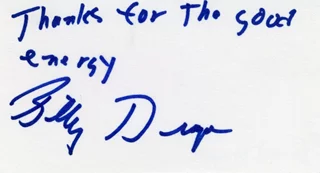 Thanks for The good
energy
Billy D